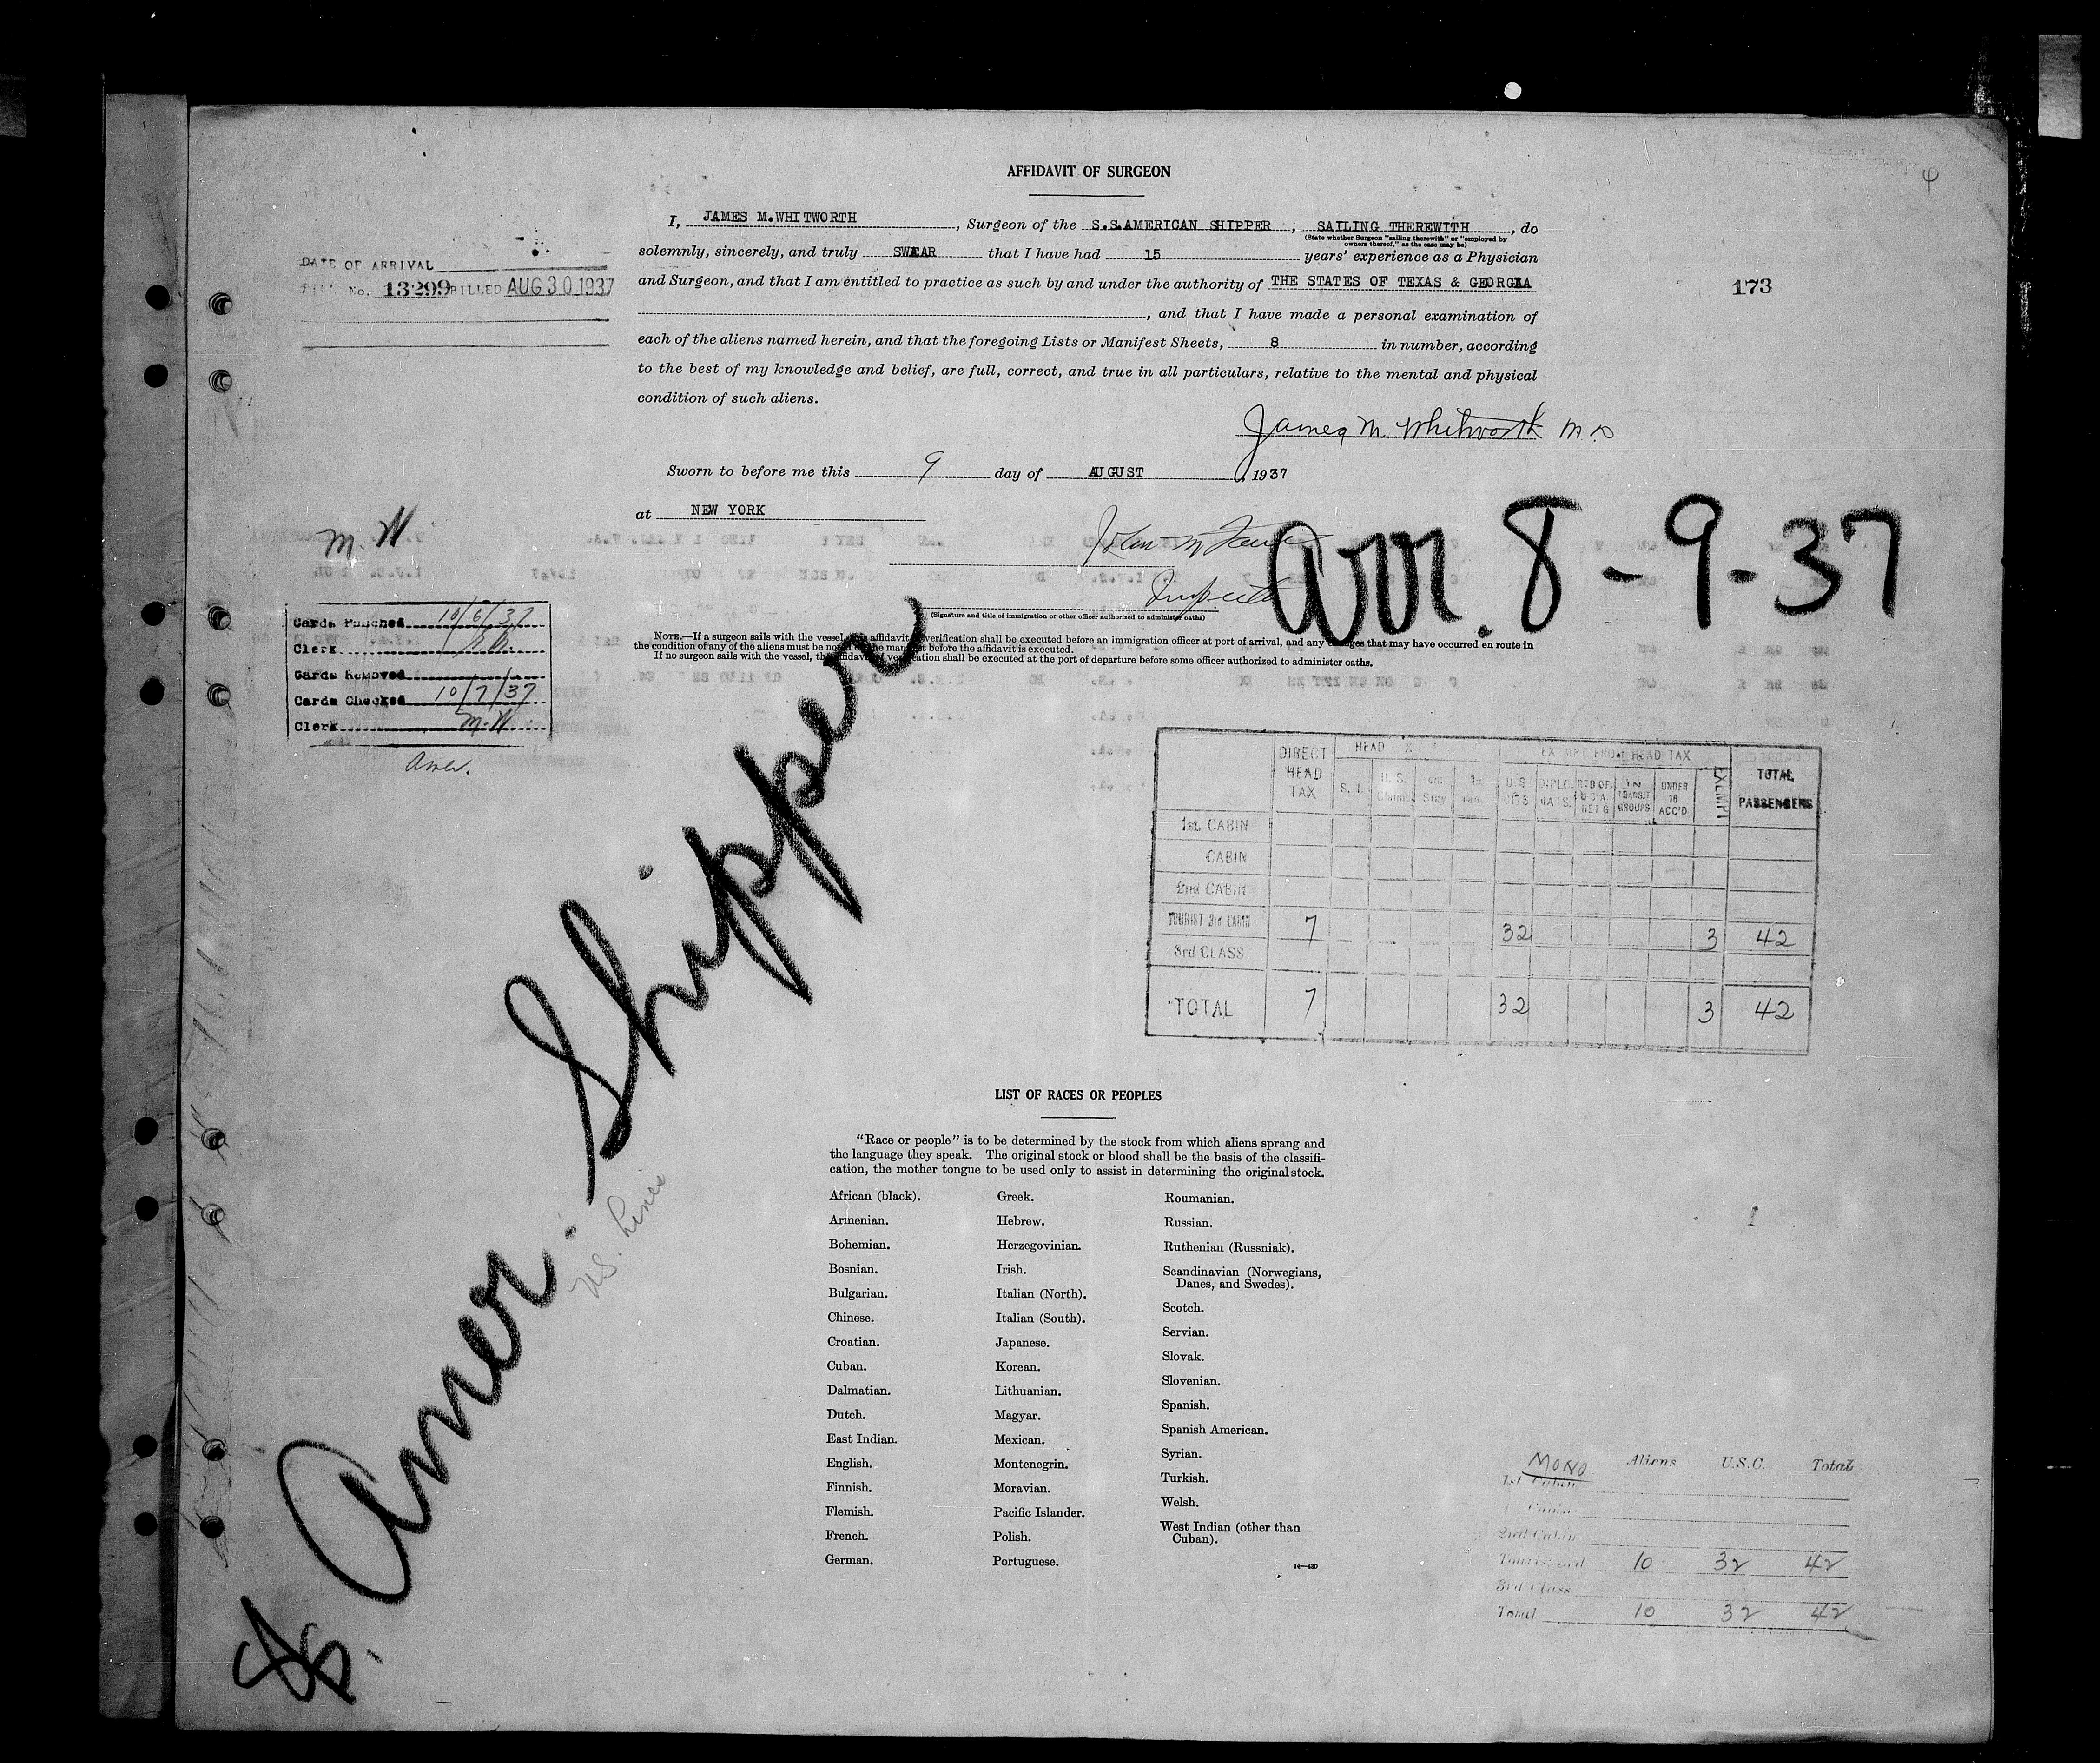 AFFIDAVIT OF SURGEON
I, JAMES M. WHITWORTH, Surgeon of the S.S. AMERICAN SHIPPER, SAILING THEREWITH, do
(State whether Surgeon "sailing therewith" or "employed by owners thereof," as the case may be)
solemnly, sincerely, and truly SWEAR that I have had 15 years' experience as a Physician
and Surgeon, and that I am entitled to practice as such by and under the authority of THE STATES OF TEXAS & GEORGIA
, and that I have made a personal examination of
each of the aliens named herein, and that the foregoing Lists or Manifest Sheets, 8 in number, according
to the best of my knowledge and belief, are full, correct, and true in all particulars, relative to the mental and physical
condition of such aliens.
James M. Whitworth M.D
Sworn to before me this 9 day of AUGUST, 1937
at NEW YORK
(Signature and title of immigration or other officer authorized to administer oaths)
NOTE.—If a surgeon sails with the vessel, this affidavit verification shall be executed before an immigration officer at port of arrival, and any changes that may have occurred en route in
the condition of any of the aliens must be noted on the manifest before the affidavit is executed.
If no surgeon sails with the vessel, the affidavit of verification shall be executed at the port of departure before some officer authorized to administer oaths.
DATE OF ARRIVAL
BILL No. 13299 BILLED AUG 30 1937
173
Arr. 8-9-37
M. W
Cards Punched 10/6/37
Clerk
Cards Removed
Cards Checked 10/7/37
Clerk M. W
Amer.
SS. Amer. Shipper
U.S. Lines
DIRECT HEAD TAX
HEAD TAX
S. I.
U.S.
EXEMPT FROM HEAD TAX
U.S. CITS
DIPLOMATS
RED OF U.S.A. RET'G
IN TRANSIT GROUPS
UNDER 16 ACC'D
EXEMPT
TOTAL PASSENGERS
1st. CABIN
CABIN
2nd CABIN
TOURIST 3rd CABIN 7 32 3 42
3rd CLASS
TOTAL 7 32 3 42
LIST OF RACES OR PEOPLES
"Race or people" is to be determined by the stock from which aliens sprang and
the language they speak. The original stock or blood shall be the basis of the classifi-
cation, the mother tongue to be used only to assist in determining the original stock.
African (black).
Armenian.
Bohemian.
Bosnian.
Bulgarian.
Chinese.
Croatian.
Cuban.
Dalmatian.
Dutch.
East Indian.
English.
Finnish.
Flemish.
French.
German.
Greek.
Hebrew.
Herzegovinian.
Irish.
Italian (North).
Italian (South).
Japanese.
Korean.
Lithuanian.
Magyar.
Mexican.
Montenegrin.
Moravian.
Pacific Islander.
Polish.
Portuguese.
Roumanian.
Russian.
Ruthenian (Russniak).
Scandinavian (Norwegians,
Danes, and Swedes).
Scotch.
Servian.
Slovak.
Slovenian.
Spanish.
Spanish American.
Syrian.
Turkish.
Welsh.
West Indian (other than
Cuban).
14—430
MONO Aliens U.S.C. Total
1st Cabin
Cabin
2nd Cabin
Tourist 3rd 10 32 42
3rd Class
Total 10 32 42